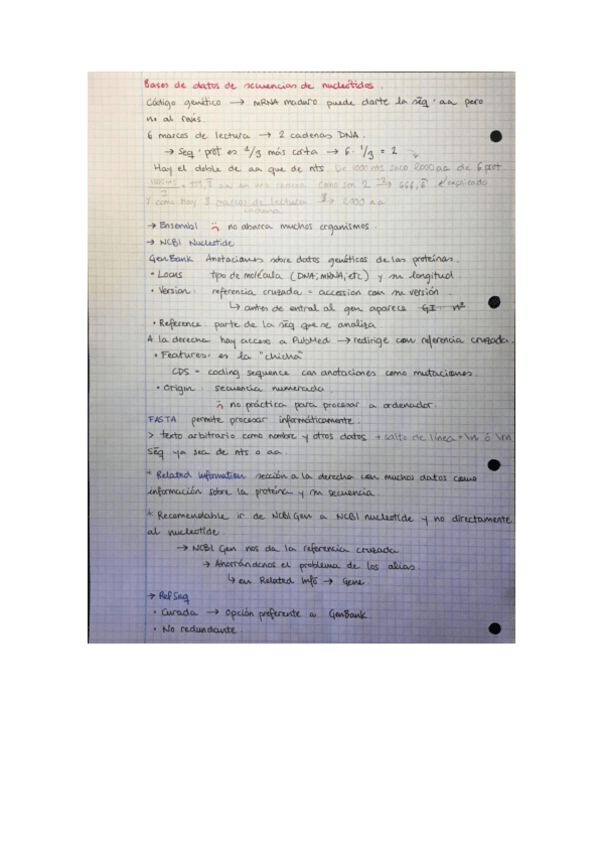 Bases de datos de secuencias de nucleótidos.
Código genético → mRNA maduro puede darte la seq. aa pero
no al revés.
6 marcos de lectura → 2 cadenas DNA.
→ seq. prot es 1/3 más corta → 6 · 1/3 = 2
Hay el doble de aa que de nts. De 1000 nts saco 2000 aa de 6 prot
aa en una cadena. Como son 2 → 666,6 explicado
Y como hay 3 marcos de lectura → 2000 aa
cadena
→ Ensembl no abarca muchos organismos.
→ NCBI Nucleotide
GenBank Anotaciones sobre datos genéticos de las proteínas.
• Locus tipo de molécula (DNA, mRNA, etc) y su longitud
• Version: referencia cruzada = accession con su versión
↳ antes de entrar al gen aparece GI = nº
• Reference: parte de la seq que se analiza
A la derecha hay acceso a PubMed → redirige con referencia cruzada.
• Features: es la "chicha"
CDS = coding sequence con anotaciones como mutaciones.
• Origin: secuencia numerada
no práctica para procesar a ordenador.
FASTA permite procesar informáticamente.
> texto arbitrario como nombre y otros datos + salto de línea = \n ó \r\n
Seq ya sea de nts o aa.
* Related Information sección a la derecha con muchos datos como
información sobre la proteína y su secuencia.
* Recomendable ir de NCBI Gen a NCBI nucleotide y no directamente
al nucleotide.
→ NCBI Gen nos da la referencia cruzada
→ Ahorrándonos el problema de los alias.
↳ en Related Info → Gene.
→ RefSeq
• Curada → Opción preferente a GenBank
• No redundante